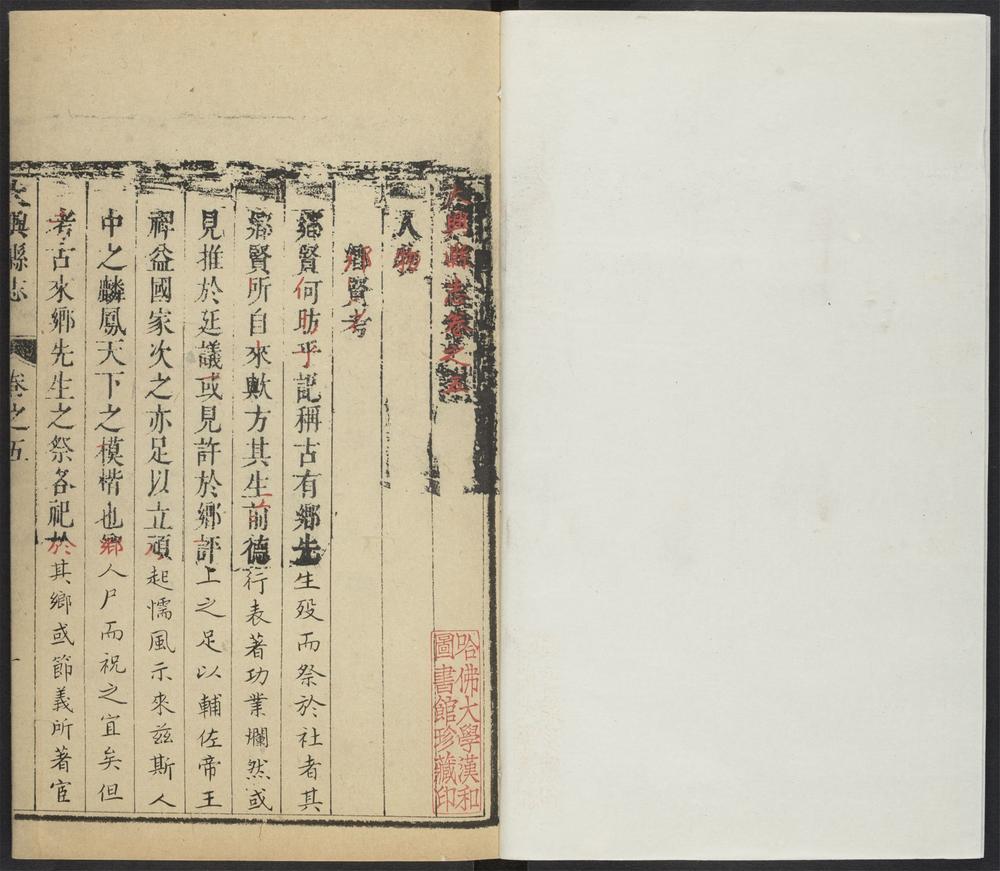 大興縣志卷之五
人物
鄉賢考
鄉賢何昉乎記稱古有鄉先生歿而祭於社者其
鄉賢所自來歟方其生前德行表著功業斕然或
見推於廷議或見許於鄉評上之足以輔佐帝王
裨益國家次之亦足以立頑起懦風示來茲斯人
中之麟鳳天下之模楷也鄉人尸而祝之宜矣但
考古來鄉先生之祭各祀於其鄉或節義所著宦
大興縣志 卷之五 一
哈佛大學漢和
圖書館珍藏印